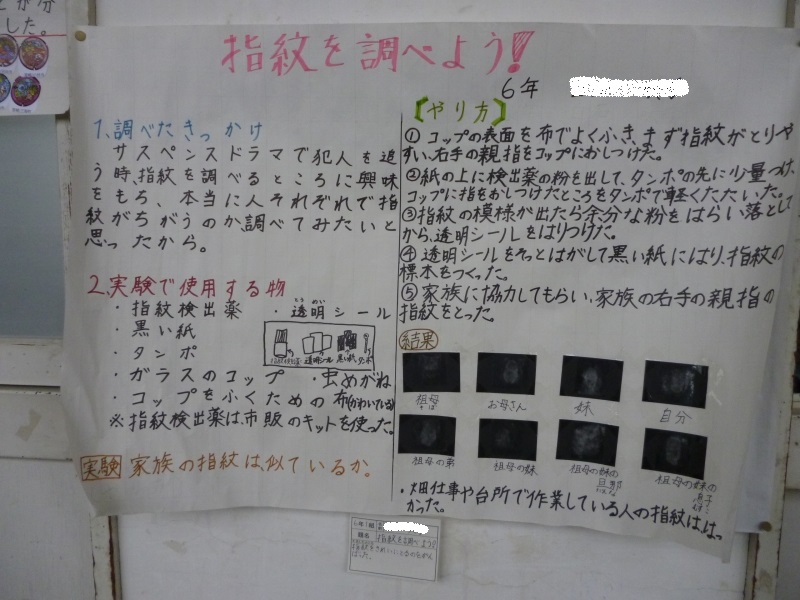 した。
指紋を調べよう!
6年
1、調べたきっかけ
サスペンスドラマで犯人を追
う時、指紋を調べるところに興味
をもち、本当に人それぞれで指
紋がちがうのか、調べてみたいと
思ったから。
2、実験で使用する物
・指紋検出薬 ・透明シール
とうめい
・黒い紙
・タンポ
透明シール 黒い紙
・ガラスのコップ ・虫めがね
・コップをふくための布(かわいている)
※指紋検出薬は市販のキットを使った。
実験 家族の指紋は似ているか。
【やり方】
① コップの表面を布でよくふき、まず指紋がとりや
すい、右手の親指をコップにおしつけた。
②紙の上に検出薬の粉を出して、タンポの先に少量つけ、
コップに指をおしつけたところをタンポで軽くたたいた。
③指紋の模様が出たら余分な粉をはらい落として
から、透明シールをはりつけた。
④ 透明シールをそっとはがして黒い紙にはり、指紋の
標本をつくった。
⑤ 家族に協力してもらい、家族の右手の親指の
指紋をとった。
結果
祖母 お母さん 妹 自分
祖母の弟 祖母の妹 祖母の妹の 祖母の妹の
息子
・畑仕事や台所で作業している人の指紋は、はっ
かった。
6年1組
題名 指紋を調べよう!